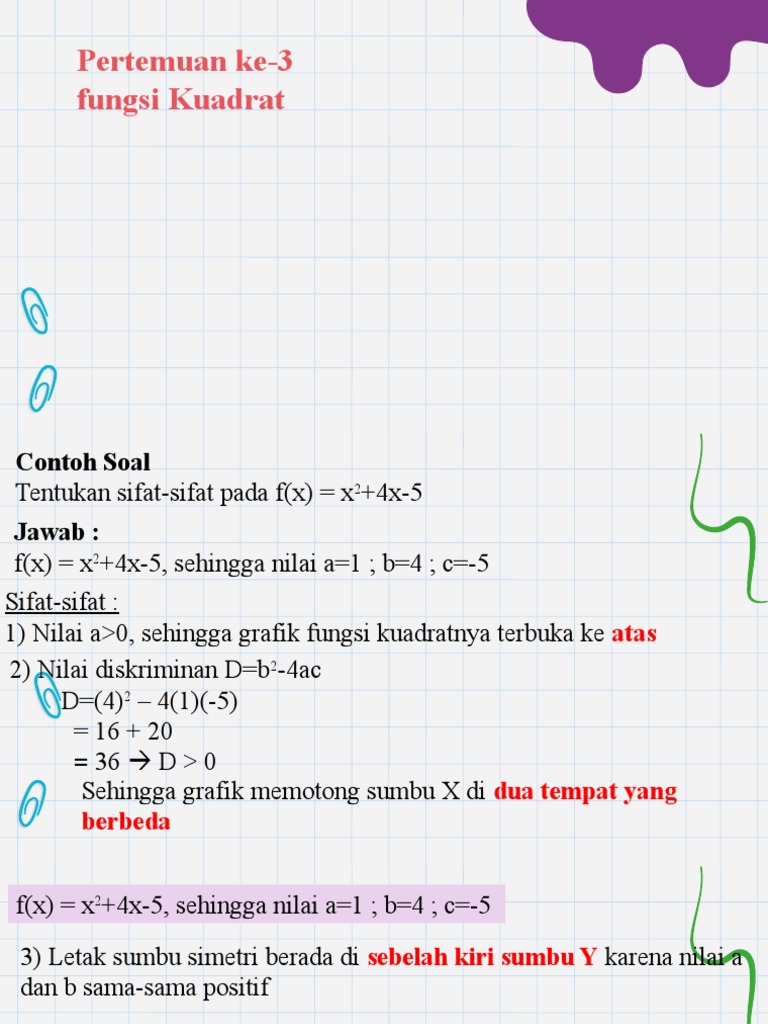 Pertemuan ke-3
fungsi Kuadrat
Contoh Soal
Tentukan sifat-sifat pada f(x) = x²+4x-5
Jawab :
f(x) = x²+4x-5, sehingga nilai a=1 ; b=4 ; c=-5
Sifat-sifat :
1) Nilai a>0, sehingga grafik fungsi kuadratnya terbuka ke atas
2) Nilai diskriminan D=b²-4ac
D=(4)² – 4(1)(-5)
= 16 + 20
= 36 → D > 0
Sehingga grafik memotong sumbu X di dua tempat yang
berbeda
f(x) = x²+4x-5, sehingga nilai a=1 ; b=4 ; c=-5
3) Letak sumbu simetri berada di sebelah kiri sumbu Y karena nilai a
dan b sama-sama positif